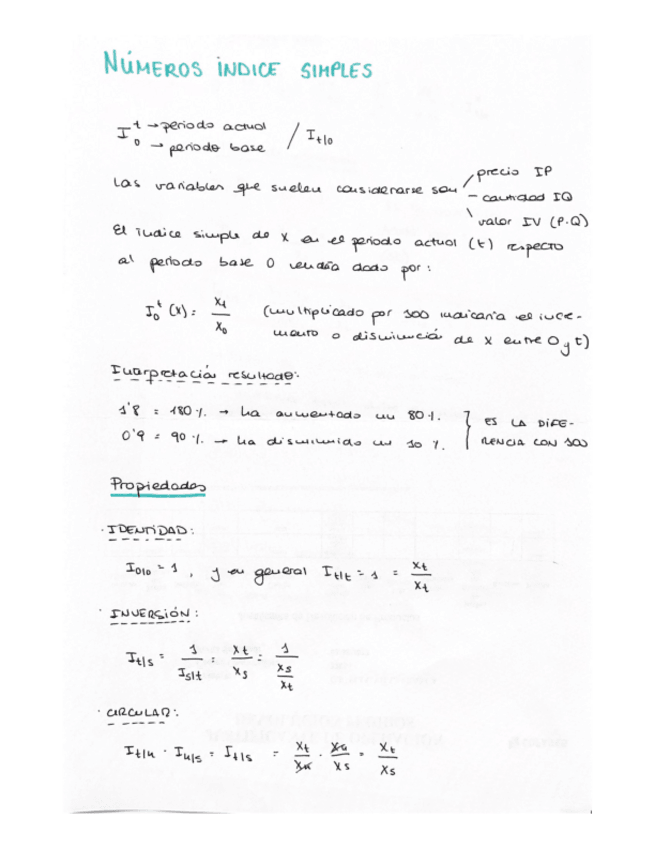 NÚMEROS ÍNDICE SIMPLES
I t → periodo actual / I t|0
0 → periodo base
Las variables que suelen considerarse son / precio IP
- cantidad IQ
\ valor IV (P·Q)
El índice simple de X en el periodo actual (t) respecto
al periodo base 0 vendría dado por:
I₀ᵗ (X) = Xt / X₀ (multiplicado por 100 indicaría el incre-
mento o disminución de X entre 0 y t)
Interpretación resultado:
1'8 = 180 %. → ha aumentado un 80 %. } ES LA DIFE-
0'9 = 90 %. → ha disminuido un 10 %. RENCIA CON 100
Propiedades
· IDENTIDAD:
I0|0 = 1, y en general It|t = 1 = Xt / Xt
· INVERSIÓN:
It|s = 1 / Is|t = Xt / Xs = 1 / (Xs / Xt)
· CIRCULAR:
It|k · Ik|s = It|s = Xt / Xk · Xk / Xs = Xt / Xs